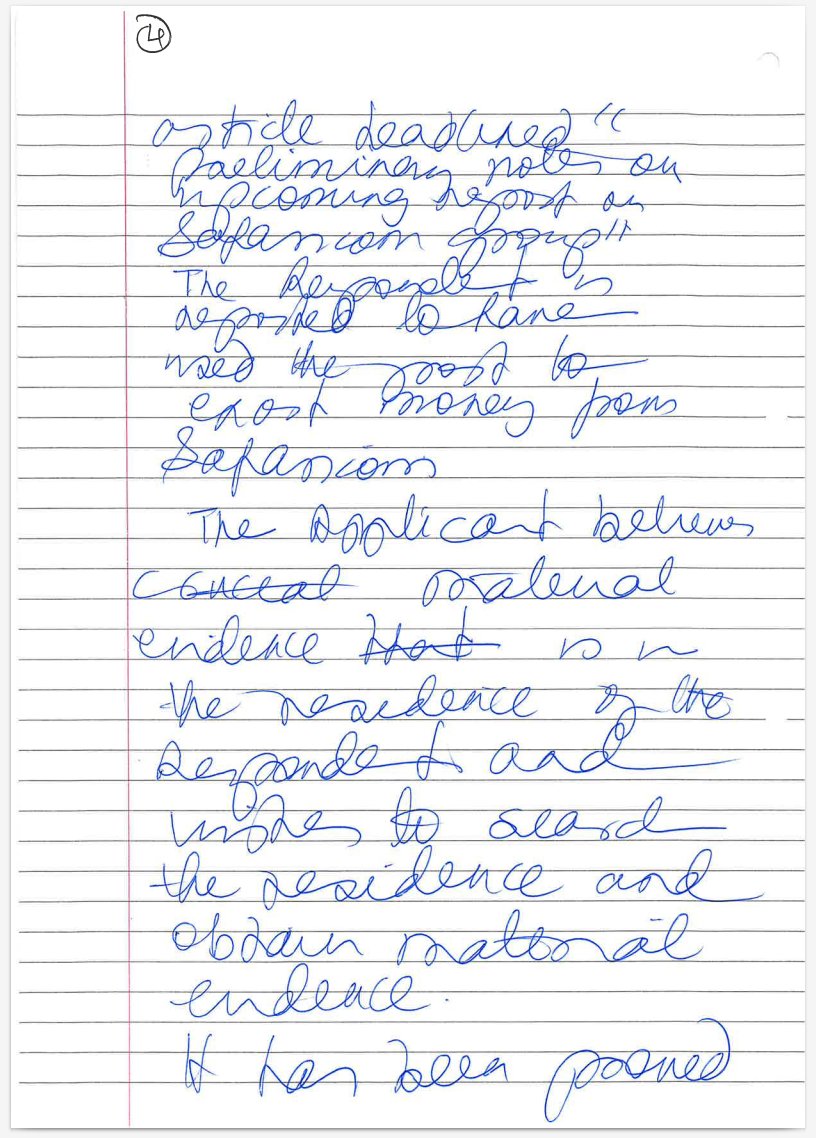 4
article headlined "
Preliminary notes on
upcoming report on
Safaricom group"
The Respondent is
reported to have
used the post to
exort money from
Safaricom
The Applicant believes
material
evidence is in
the residence of the
Respondent and
wishes to search
the residence and
obtain material
evidence.
It has been